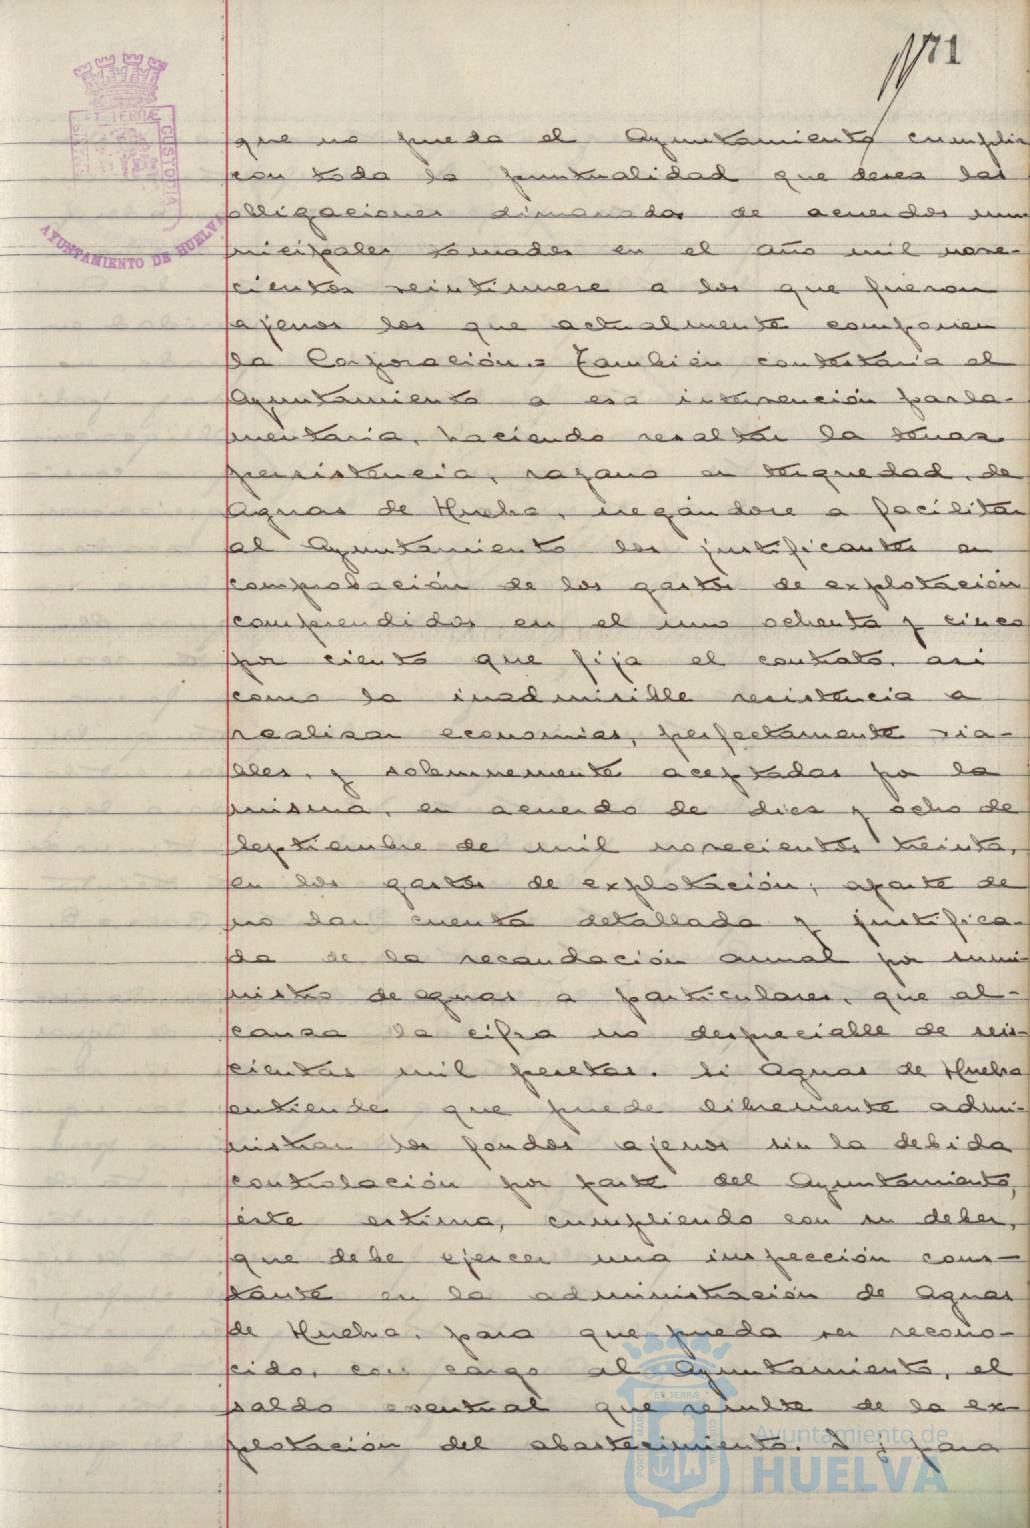 71
ET TERRAE CUSTODIA
AYUNTAMIENTO DE HUELVA
que no pueda el Ayuntamiento cumplir
con toda la puntualidad que desea las
obligaciones dimanadas de acuerdos mu-
nicipales tomados en el año mil nove-
cientos veintinueve a los que fueron
ajenos los que actualmente componen
la Corporación.= También contestaria el
Ayuntamiento a esa intervención parla-
mentaria, haciendo resaltar la tenaz
persistencia, rayana en terquedad, de
Aguas de Huelva, negándose a facilitar
al Ayuntamiento los justificantes en
comprobación de los gastos de explotación
comprendidos en el uno ochenta y cinco
por ciento que fija el contrato, asi
como la inadmisible resistencia a
realizar economias, perfectamente via-
bles, y solemnemente aceptadas por la
misma, en acuerdo de diez y ocho de
Septiembre de mil novecientos treinta,
en los gastos de explotación; aparte de
no dar cuenta detallada y justifica-
da de la recaudación anual por sumi-
nistro de aguas a particulares, que al-
canza la cifra no despreciable de seis-
cientas mil pesetas. Si Aguas de Huelva
entiende que puede libremente admi-
nistrar los fondos ajenos sin la debida
controlación por parte del Ayuntamiento,
éste estima, cumpliendo con su deber,
que debe ejercer una inspección cons-
tante en la administración de Aguas
de Huelva, para que pueda ser recono-
cido, con cargo al Ayuntamiento, el
saldo eventual que resulte de la ex-
plotación del abastecimiento. Y ¿para
Ayuntamiento de
HUELVA